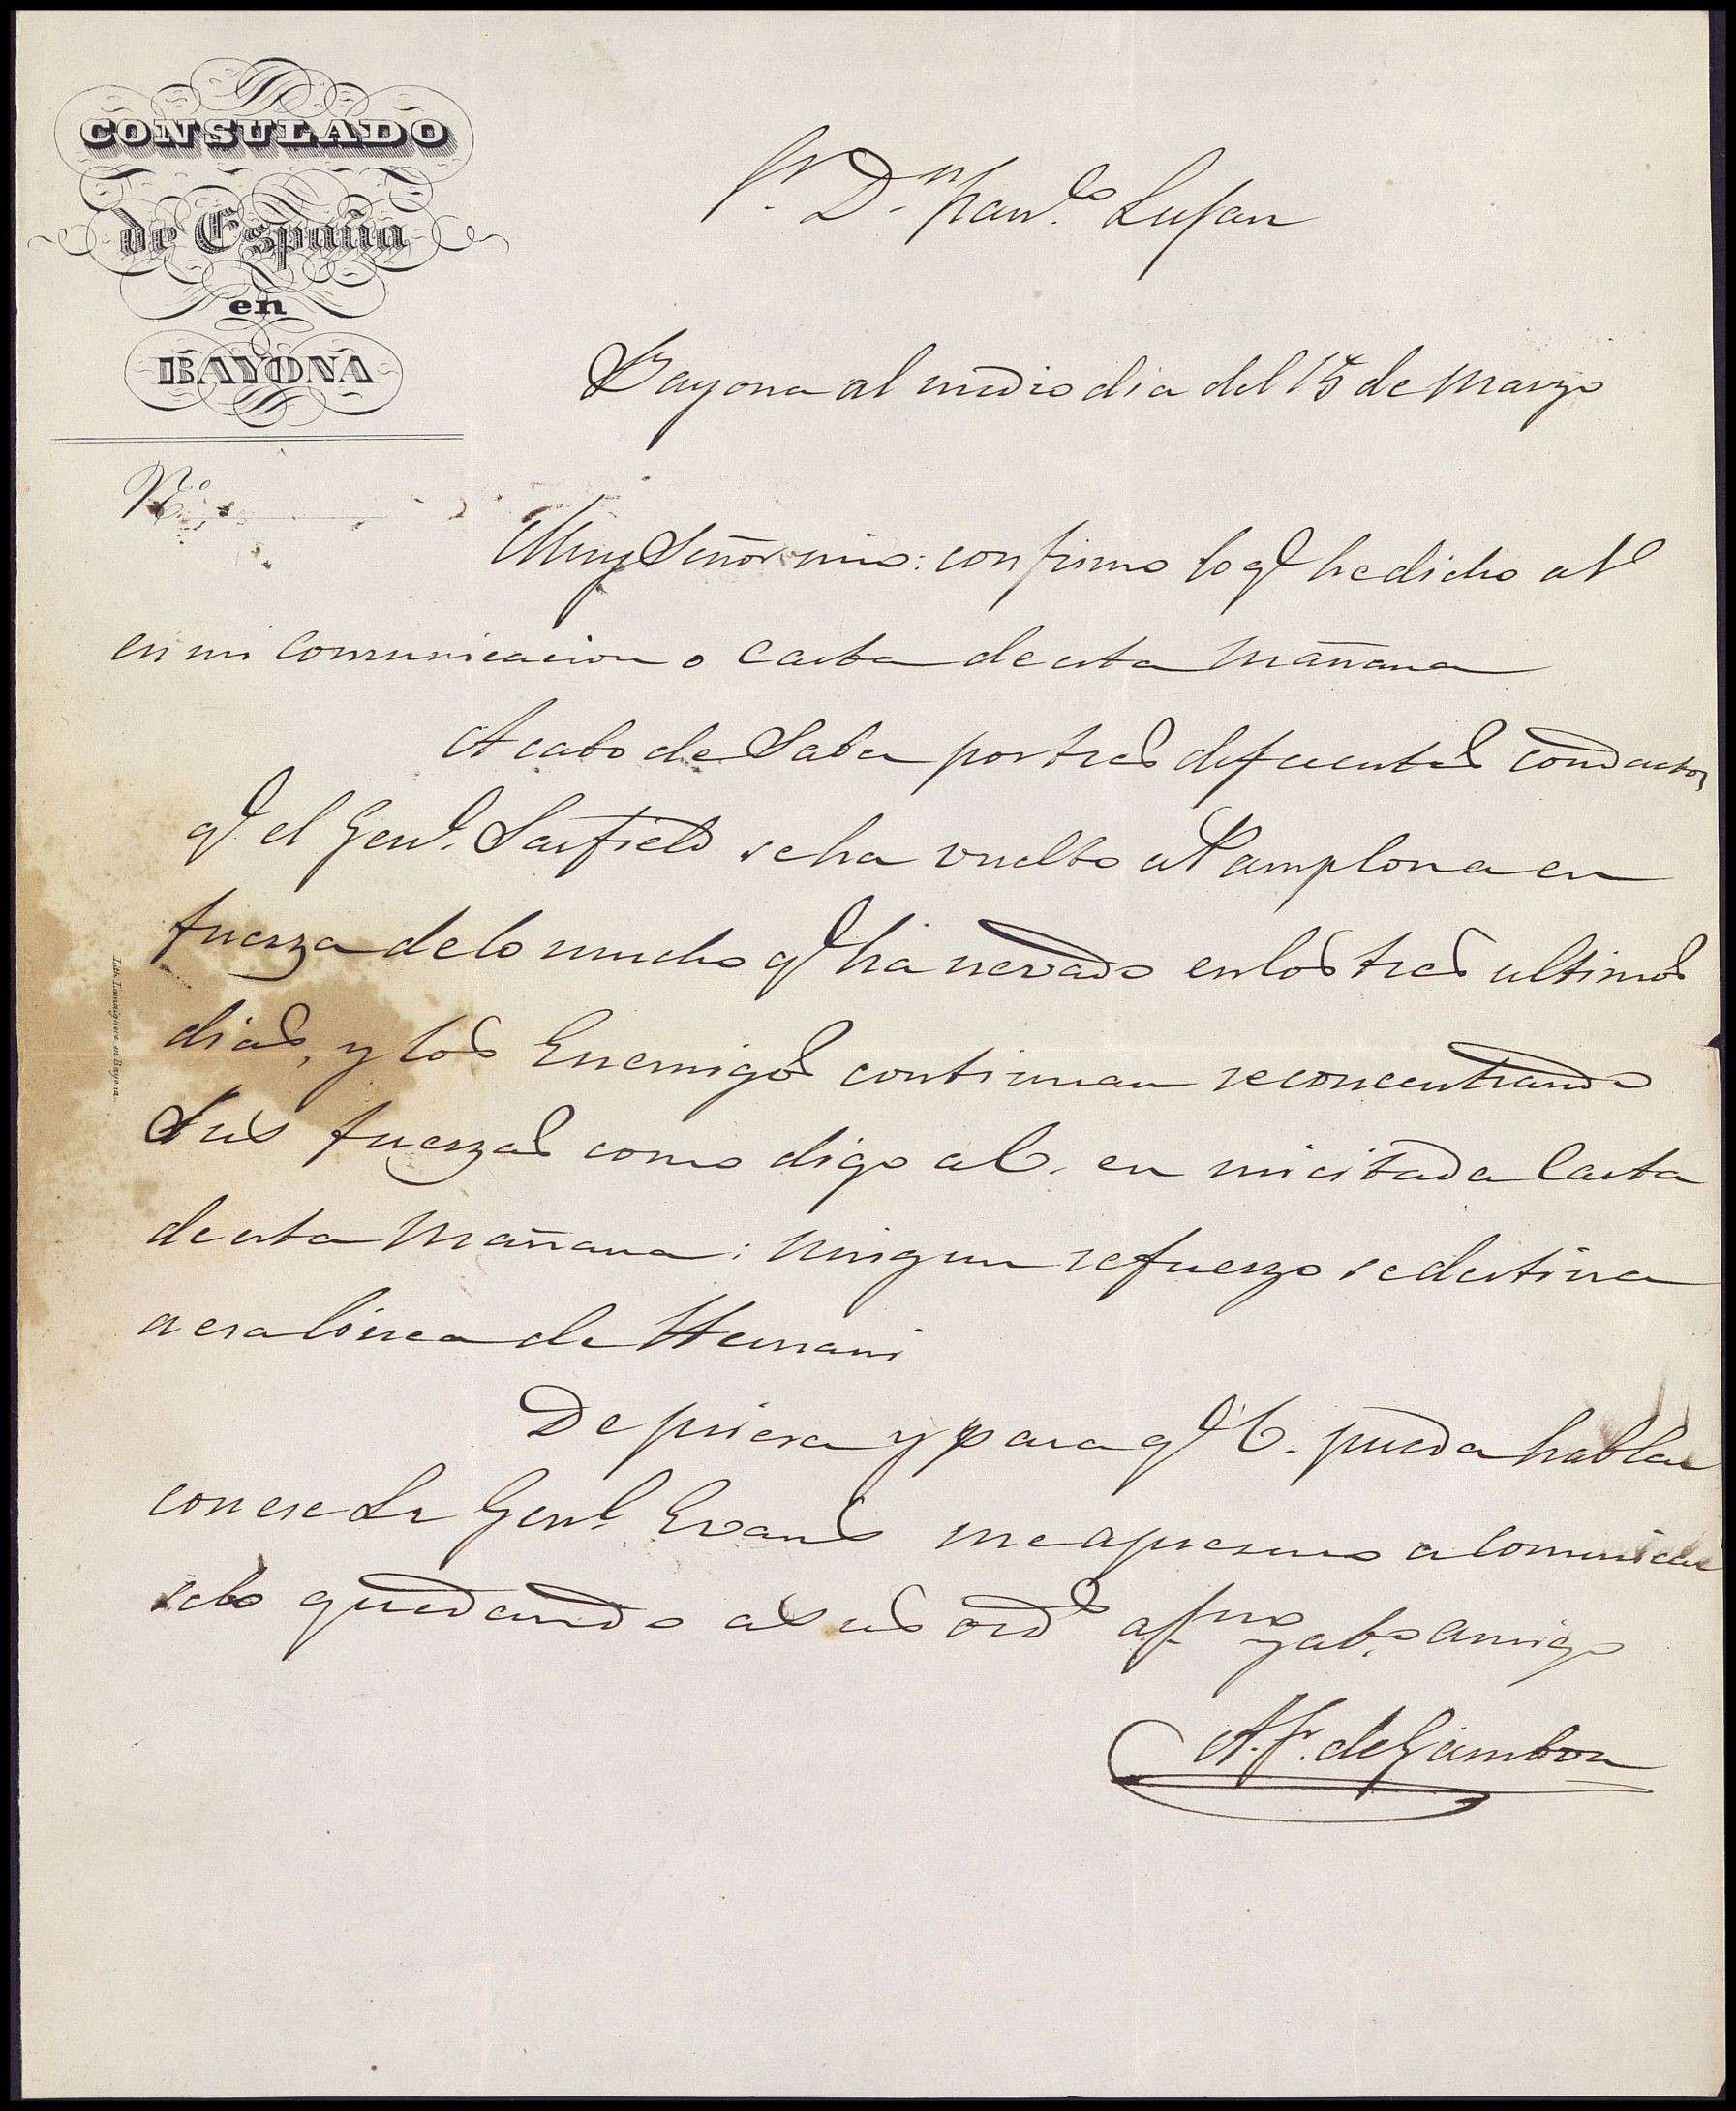 CONSULADO
de España
en
BAYONA
N.º
Sr. Dn. Franco. Lujan
Bayona al medio dia del 15 de Marzo
Muy Señor mio: confirmo lo qe he dicho a V
en mi comunicacion o carta de esta Mañana
Acabo de Saber por tres diferentes conductos
qe el Genl. Sarfield se ha vuelto a Pamplona en
fuerza de lo mucho qe ha nevado en los tres ultimos
dias, y los Enemigos continuan reconcentrando
Sus fuerzas como digo a V. en mi citada Carta
de esta Mañana: ningun refuerzo se destina
a esa linea de Hernani
De priesa y para qe V. pueda hablar
con ese Sr Genl. Evans me apresuro a comunicar
selo quedando a sus ords afmo y ato. amigo
A. F. de Gamboa
Lith. Lamaignere en Bayona.